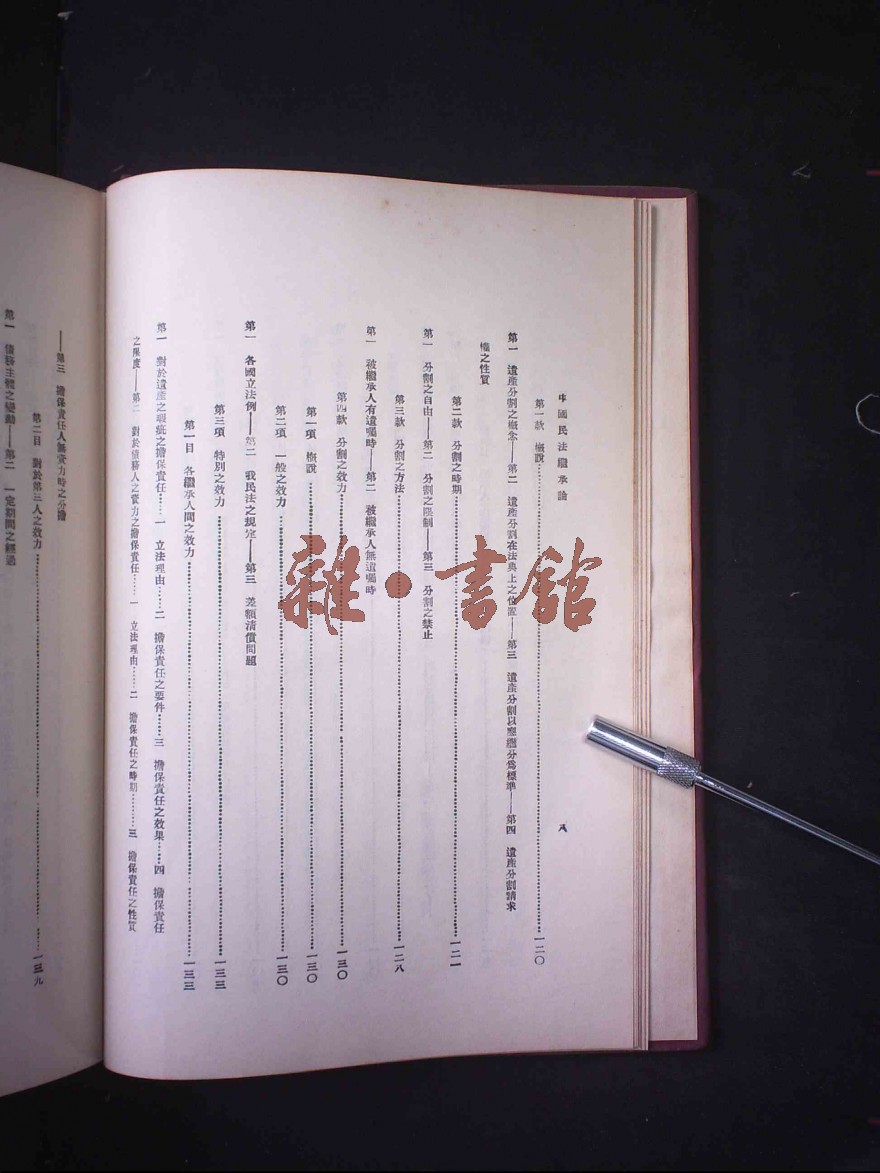 中國民法繼承論
八
第一款 概說……一二〇
第一 遺產分割之概念——第二 遺產分割在法典上之位置——第三 遺產分割以應繼分爲標準——第四 遺產分割請求
權之性質
第二款 分割之時期……一二一
第一 分割之自由——第二 分割之限制——第三 分割之禁止
第三款 分割之方法……一二八
第一 被繼承人有遺囑時——第二 被繼承人無遺囑時
第四款 分割之效力……一三〇
第一項 概說……一三〇
第二項 一般之效力……一三〇
第一 各國立法例——第二 我民法之規定——第三 差額清償問題
第三項 特別之效力……一三三
第一目 各繼承人間之效力……一三三
第一 對於遺產之瑕疵之擔保責任……一 立法理由……二 擔保責任之要件……三 擔保責任之效果……四 擔保責任
之限度——第二 對於債務人之資力之擔保責任……一 立法理由……二 擔保責任之時期……三 擔保責任之性質
——第三 擔保責任人無資力時之分擔
第二目 對於第三人之效力……一三九
第一 債務主體之變動——第二 一定期間之經過
雜·書館